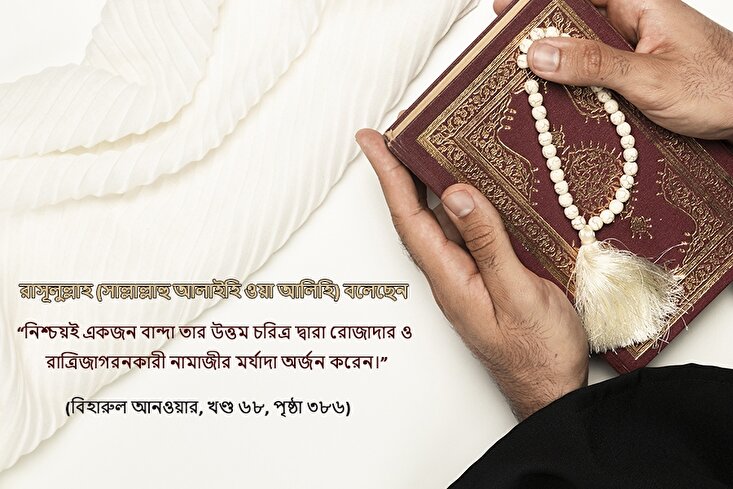 রাসূলুল্লাহ (সাল্লাল্লাহু আলাইহি ওয়া আলিহি) বলেছেন
“নিশ্চয়ই একজন বান্দা তার উত্তম চরিত্র দ্বারা রোজাদার ও
রাত্রিজাগরনকারী নামাজীর মর্যাদা অর্জন করেন।”
(বিহারুল আনওয়ার, খণ্ড ৬৮, পৃষ্ঠা ৩৮৬)